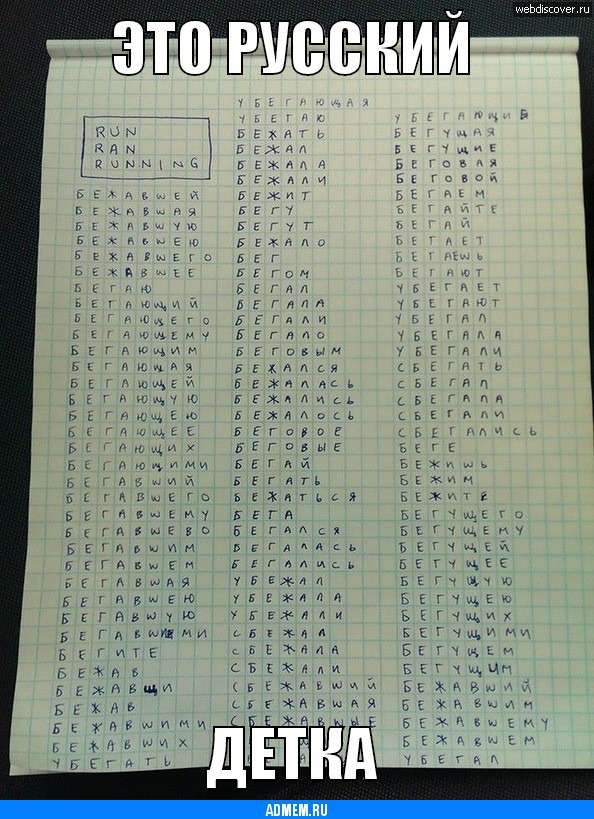 webdiscover.ru
ЭТО РУССКИЙ
RUN
RAN
RUNNING
БЕЖАВШЕЙ
БЕЖАВШАЯ
БЕЖАВШУЮ
БЕЖАВШЕЮ
БЕЖАВШЕГО
БЕЖАВШЕЕ
БЕГАЮ
БЕГАЮЩИЙ
БЕГАЮЩЕГО
БЕГАЮЩЕМУ
БЕГАЮЩИМ
БЕГАЮЩАЯ
БЕГАЮЩЕЙ
БЕГАЮЩУЮ
БЕГАЮЩЕЮ
БЕГАЮЩЕЕ
БЕГАЮЩИХ
БЕГАЮЩИМИ
БЕГАВШИЙ
БЕГАВШЕГО
БЕГАВШЕМУ
БЕГАВШЕВО
БЕГАВШИМ
БЕГАВШЕМ
БЕГАВШАЯ
БЕГАВШЕЮ
БЕГАВШУЮ
БЕГАВШИМИ
БЕГИТЕ
БЕЖАВ
БЕЖАВЩИ
БЕЖАВ
БЕЖАВШИМИ
БЕЖАВШИХ
УБЕГАТЬ
УБЕГАЮЩАЯ
УБЕГАЮ
БЕЖАТЬ
БЕЖАЛ
БЕЖАЛА
БЕЖАЛИ
БЕЖИТ
БЕГУ
БЕГУТ
БЕЖАЛО
БЕГ
БЕГОМ
БЕГАЛ
БЕГАЛА
БЕГАЛИ
БЕГАЛО
БЕГОВЫМ
БЕЖАЛСЯ
БЕЖАЛАСЬ
БЕЖАЛИСЬ
БЕЖАЛОСЬ
БЕГОВОЕ
БЕГОВЫЕ
БЕГАЙ
БЕГАТЬ
БЕЖАТЬСЯ
БЕГА
БЕГАЛСЯ
БЕГАЛАСЬ
БЕГАЛИСЬ
УБЕЖАЛ
УБЕЖАЛА
УБЕЖАЛИ
СБЕЖАЛ
СБЕЖАЛА
СБЕЖАЛИ
СБЕЖАВШИЙ
СБЕЖАВШАЯ
СБЕЖАВШЫЕ
УБЕГАЮЩИЕ
БЕГУЩАЯ
БЕГУЩИЕ
БЕГОВАЯ
БЕГОВОЙ
БЕГАЕМ
БЕГАЙТЕ
БЕГАЙ
БЕГАЕТ
БЕГАЕШЬ
БЕГАЮТ
УБЕГАЕТ
УБЕГАЮТ
УБЕГАЛ
УБЕГАЛА
УБЕГАЛИ
СБЕГАТЬ
СБЕГАЛ
СБЕГАЛА
СБЕГАЛИ
СБЕГАЛИСЬ
БЕГЕ
БЕЖИШЬ
БЕЖИМ
БЕЖИТЕ
БЕГУЩЕГО
БЕГУЩЕМУ
БЕГУЩЕЙ
БЕГУЩЕЕ
БЕГУЩУЮ
БЕГУЩЕЮ
БЕГУЩИХ
БЕГУЩИМИ
БЕГУЩЕМ
БЕГУЩИМ
БЕЖАВШИЙ
БЕЖАВШИМ
БЕЖАВШЕМУ
БЕЖАВШЕМ
УБЕГАЛ
ДЕТКА
ADMEM.RU